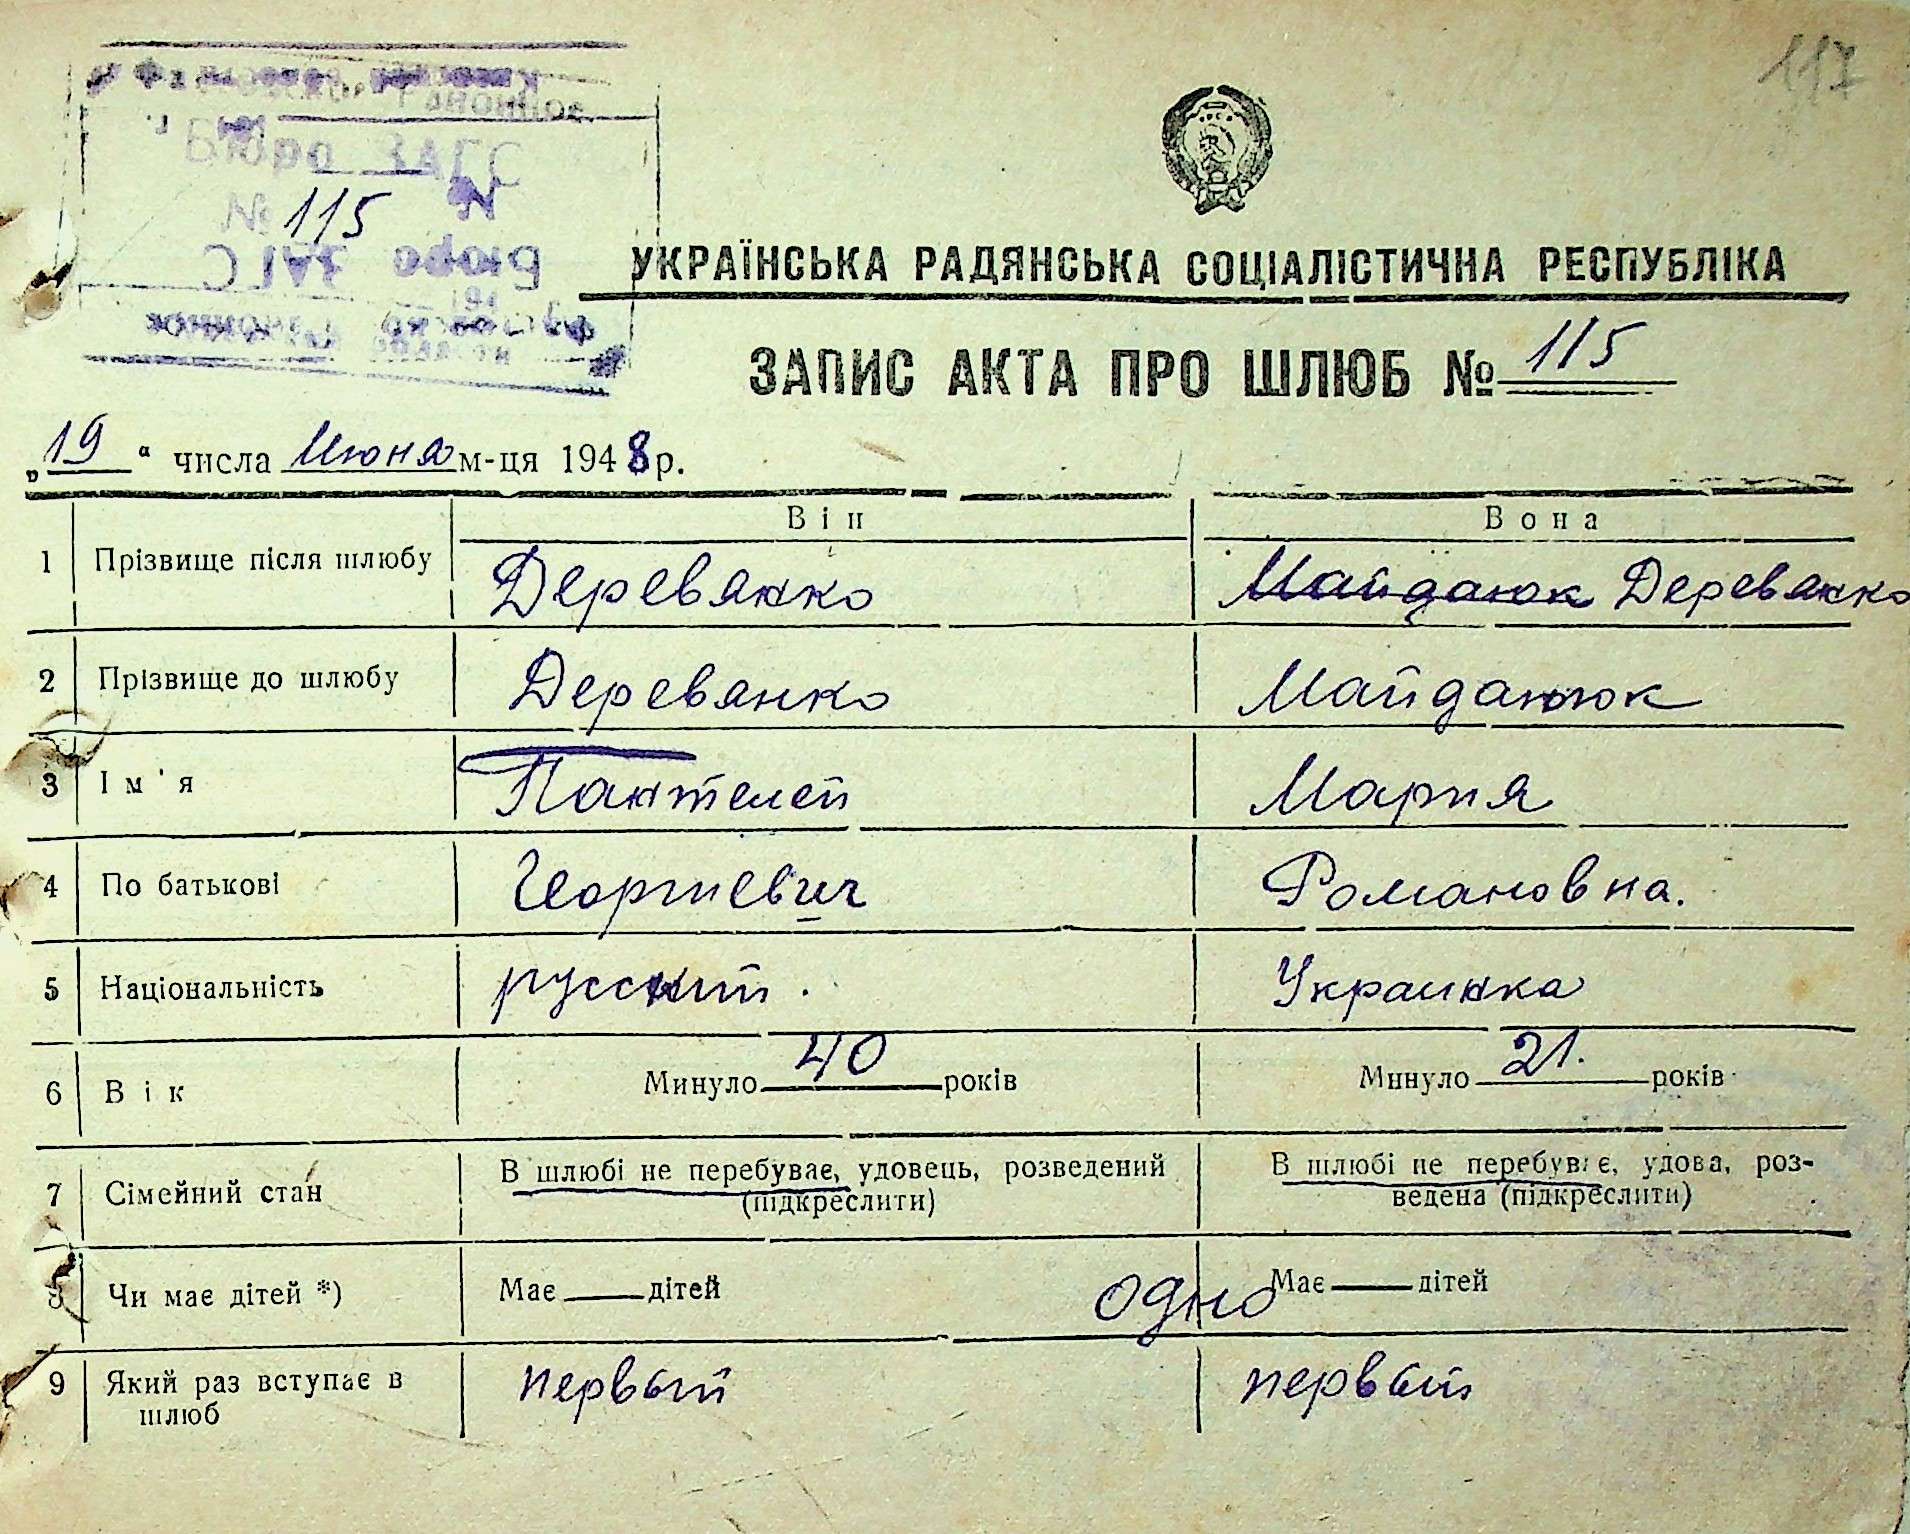 117
Бюро ЗАГС
№ 115
Бюро ЗАГС
УКРАЇНСЬКА РАДЯНСЬКА СОЦІАЛІСТИЧНА РЕСПУБЛІКА
ЗАПИС АКТА ПРО ШЛЮБ № 115
„19“ числа Июня м-ця 1948 р.
Він Вона
1 Прізвище після шлюбу Деревянко Майданюк Деревянко
2 Прізвище до шлюбу Деревянко Майданюк
3 Ім'я Пантелей Мария
4 По батькові Георгиевич Романовна.
5 Національність русский. Украинка
6 Вік Минуло 40 років Минуло 21. років
7 Сімейний стан В шлюбі не перебуває, удовець, розведений (підкреслити) В шлюбі не перебуває, удова, роз-
ведена (підкреслити)
8 Чи має дітей *) Має дітей одно Має дітей
9 Який раз вступає в первый первый
шлюб